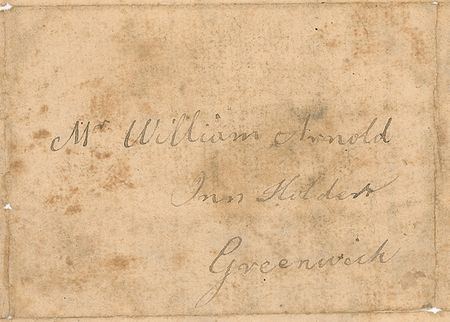 Mr William Arnold
Inn Holder
Greenwich